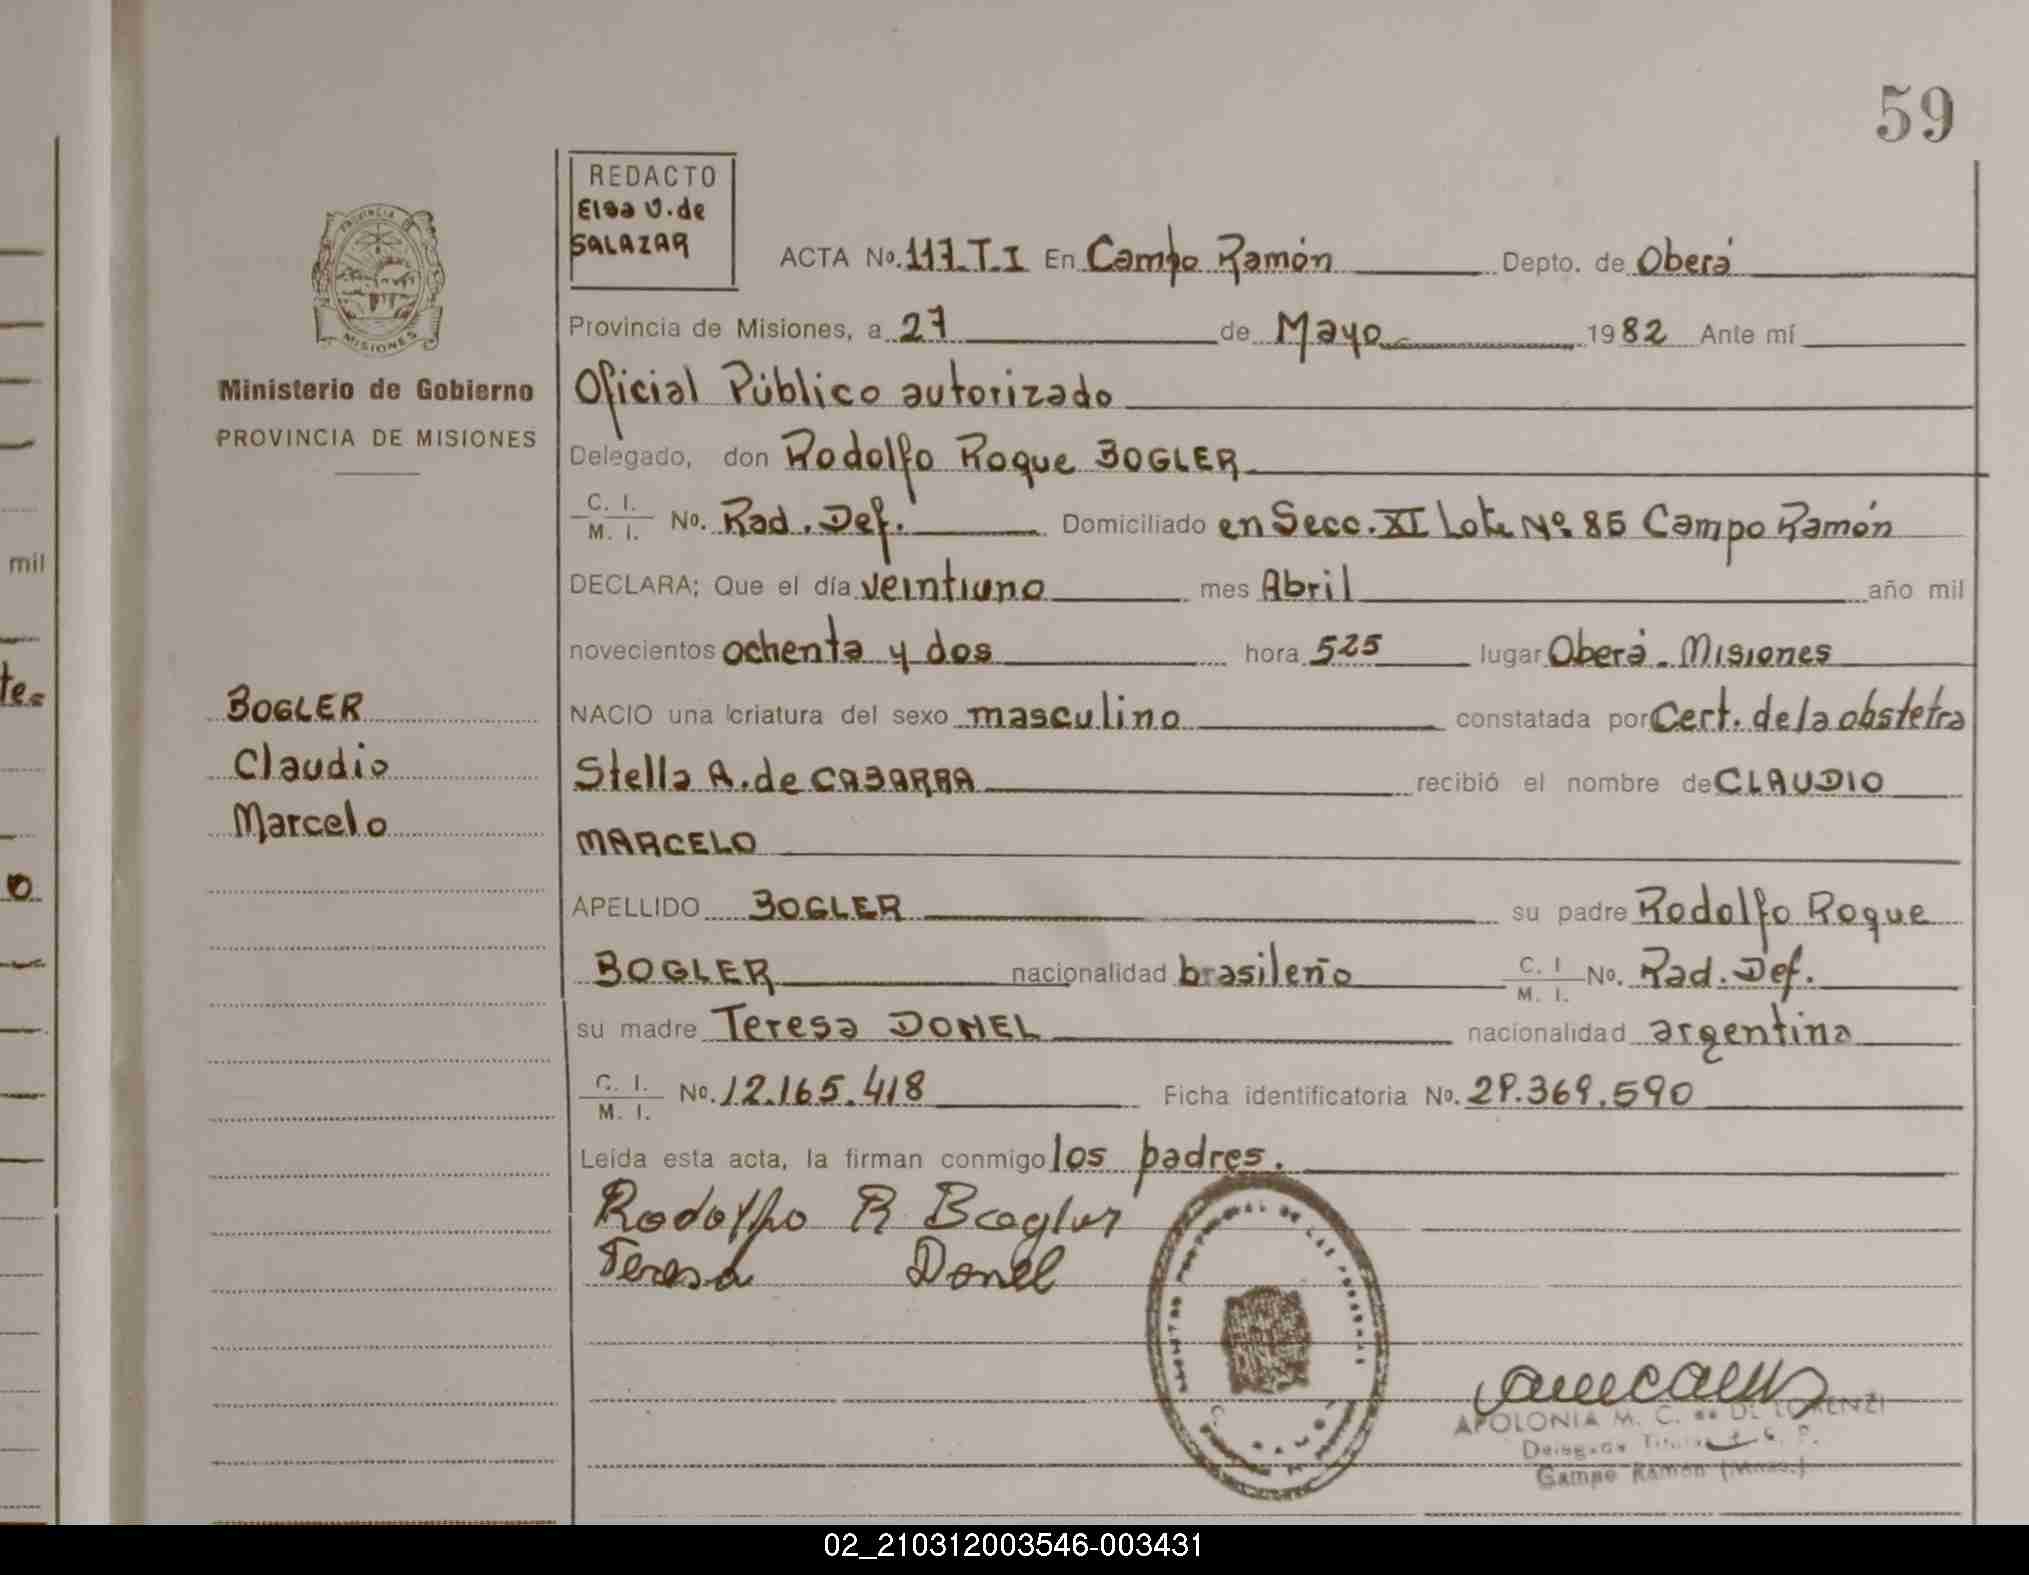 59
REDACTO
Elsa V. de
SALAZAR
PROVINCIA DE
MISIONES
Ministerio de Gobierno
PROVINCIA DE MISIONES
ACTA No. 117. T. I En Campo Ramón Depto. de Oberá
Provincia de Misiones, a 27 de Mayo 1982 Ante mí
Oficial Público autorizado
Delegado, don Rodolfo Roque BOGLER
C. I. / M. I. No. Rad. Def. Domiciliado en Secc. XI Lote Nº 85 Campo Ramón
DECLARA; Que el día veintiuno mes Abril año mil
novecientos ochenta y dos hora 525 lugar Oberá. Misiones
NACIO una criatura del sexo masculino constatada por Cert. de la obstetra
Stella A. de CABARRA recibió el nombre de CLAUDIO
MARCELO
APELLIDO BOGLER su padre Rodolfo Roque
BOGLER nacionalidad brasileño C. I / M. I. No. Rad. Def.
su madre Teresa DONEL nacionalidad argentina
C. I. / M. I. No. 12.165.418 Ficha identificatoria No. 29.369.590
Leída esta acta, la firman conmigo los padres.
BOGLER
Claudio
Marcelo
Rodolfo R Bogler
Teresa Donel
APOLONIA M. C. de DE LORENZI
Campo Ramón
mil
te=
o
02_210312003546-003431